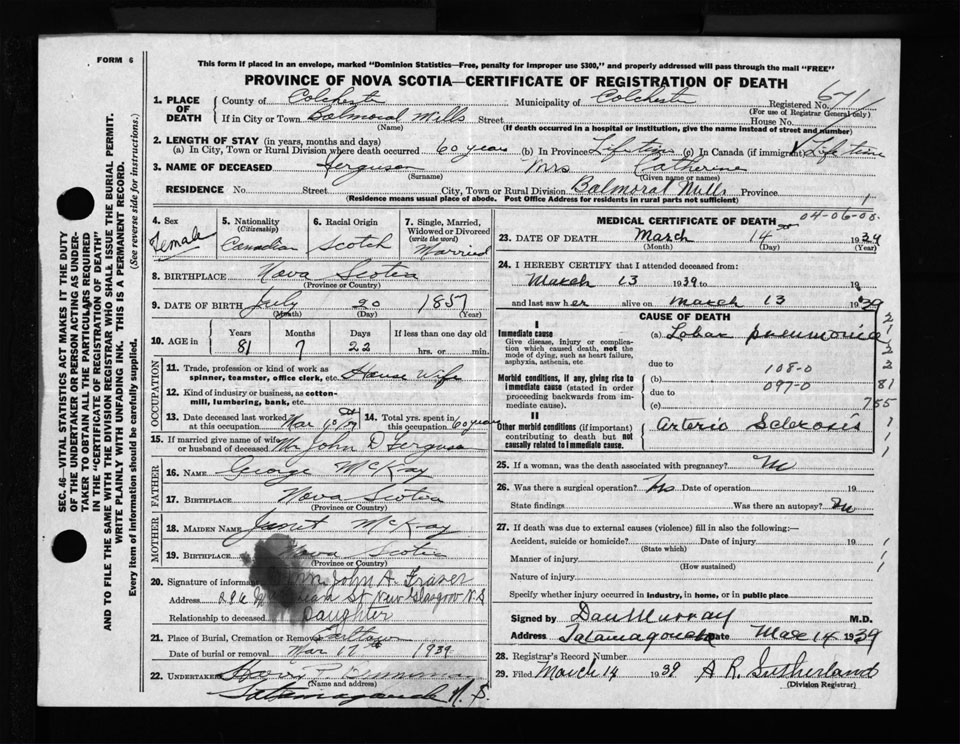 FORM 6
This form if placed in an envelope, marked "Dominion Statistics—Free, penalty for improper use $300," and properly addressed will pass through the mail "FREE"
PROVINCE OF NOVA SCOTIA—CERTIFICATE OF REGISTRATION OF DEATH
1. PLACE OF DEATH County of Colchester Municipality of Colchester Registered No. 671
(For use of Registrar General only)
If in City or Town Balmoral Mills Street House No.
(Name) (If death occurred in a hospital or institution, give the name instead of street and number)
2. LENGTH OF STAY (in years, months and days)
(a) In City, Town or Rural Division where death occurred 60 years (b) In Province Lifetime (c) In Canada (if immigrant) Lifetime
3. NAME OF DECEASED Ferguson Mrs Catherine
(Surname) (Given name or names)
RESIDENCE No. Street City, Town or Rural Division Balmoral Mills Province
(Residence means usual place of abode. Post Office Address for residents in rural parts not sufficient)
4. Sex Female
5. Nationality (Citizenship) Canadian
6. Racial Origin Scotch
7. Single, Married, Widowed or Divorced (write the word) Married
8. BIRTHPLACE Nova Scotia
(Province or Country)
9. DATE OF BIRTH July 20 1857
(Month) (Day) (Year)
10. AGE in Years Months Days If less than one day old
81 7 22 hrs. or min.
OCCUPATION
11. Trade, profession or kind of work as spinner, teamster, office clerk, etc. House Wife
12. Kind of industry or business, as cotton-mill, lumbering, bank, etc.
13. Date deceased last worked at this occupation Mar 10/39
14. Total yrs. spent in this occupation 60 years
15. If married give name of wife or husband of deceased Mr John D Ferguson
FATHER
16. NAME George McKay
17. BIRTHPLACE Nova Scotia
(Province or Country)
MOTHER
18. MAIDEN NAME Janet McKay
19. BIRTHPLACE Nova Scotia
(Province or Country)
20. Signature of informant John A. Fraser
Address St New Glasgow N.S
Relationship to deceased Daughter
21. Place of Burial, Cremation or Removal Earltown
Date of burial or removal Mar 17th 1939
22. UNDERTAKER Harry
(Name and address)
Tatamagouche N.S.
MEDICAL CERTIFICATE OF DEATH
04-06-08.
23. DATE OF DEATH March 14 1939
(Month) (Day) (Year)
24. I HEREBY CERTIFY that I attended deceased from:
March 13 1939 to 19
and last saw her alive on March 13 1939
CAUSE OF DEATH
I
Immediate cause
Give disease, injury or complication which caused death, not the mode of dying, such as heart failure, asphyxia, asthenia, etc
(a) Lobar pneumonia
due to
108-0
Morbid conditions, if any, giving rise to immediate cause (stated in order proceeding backwards from immediate cause).
(b)
097-0
due to
(c)
II
Other morbid conditions (if important) contributing to death but not causally related to immediate cause.
Arterio Sclerosis
25. If a woman, was the death associated with pregnancy?
26. Was there a surgical operation? No Date of operation 19
State findings Was there an autopsy? No
27. If death was due to external causes (violence) fill in also the following:—
Accident, suicide or homicide? Date of injury 19
(State which)
Manner of injury
(How sustained)
Nature of injury
Specify whether injury occurred in industry, in home, or in public place
Signed by Dan Murray M.D.
Address Tatamagouche Date Mar 14 1939
28. Registrar's Record Number
29. Filed March 14 1939 A R. Sutherland
(Division Registrar)
SEC. 46—VITAL STATISTICS ACT MAKES IT THE DUTY
OF THE UNDERTAKER OR PERSON ACTING AS UNDER-
TAKER TO OBTAIN ALL THE PARTICULARS REQUIRED
IN THE "CERTIFICATE OF REGISTRATION OF DEATH"
AND TO FILE THE SAME WITH THE DIVISION REGISTRAR WHO SHALL ISSUE THE BURIAL PERMIT.
WRITE PLAINLY WITH UNFADING INK. THIS IS A PERMANENT RECORD.
Every item of information should be carefully supplied. (See reverse side for instructions.)